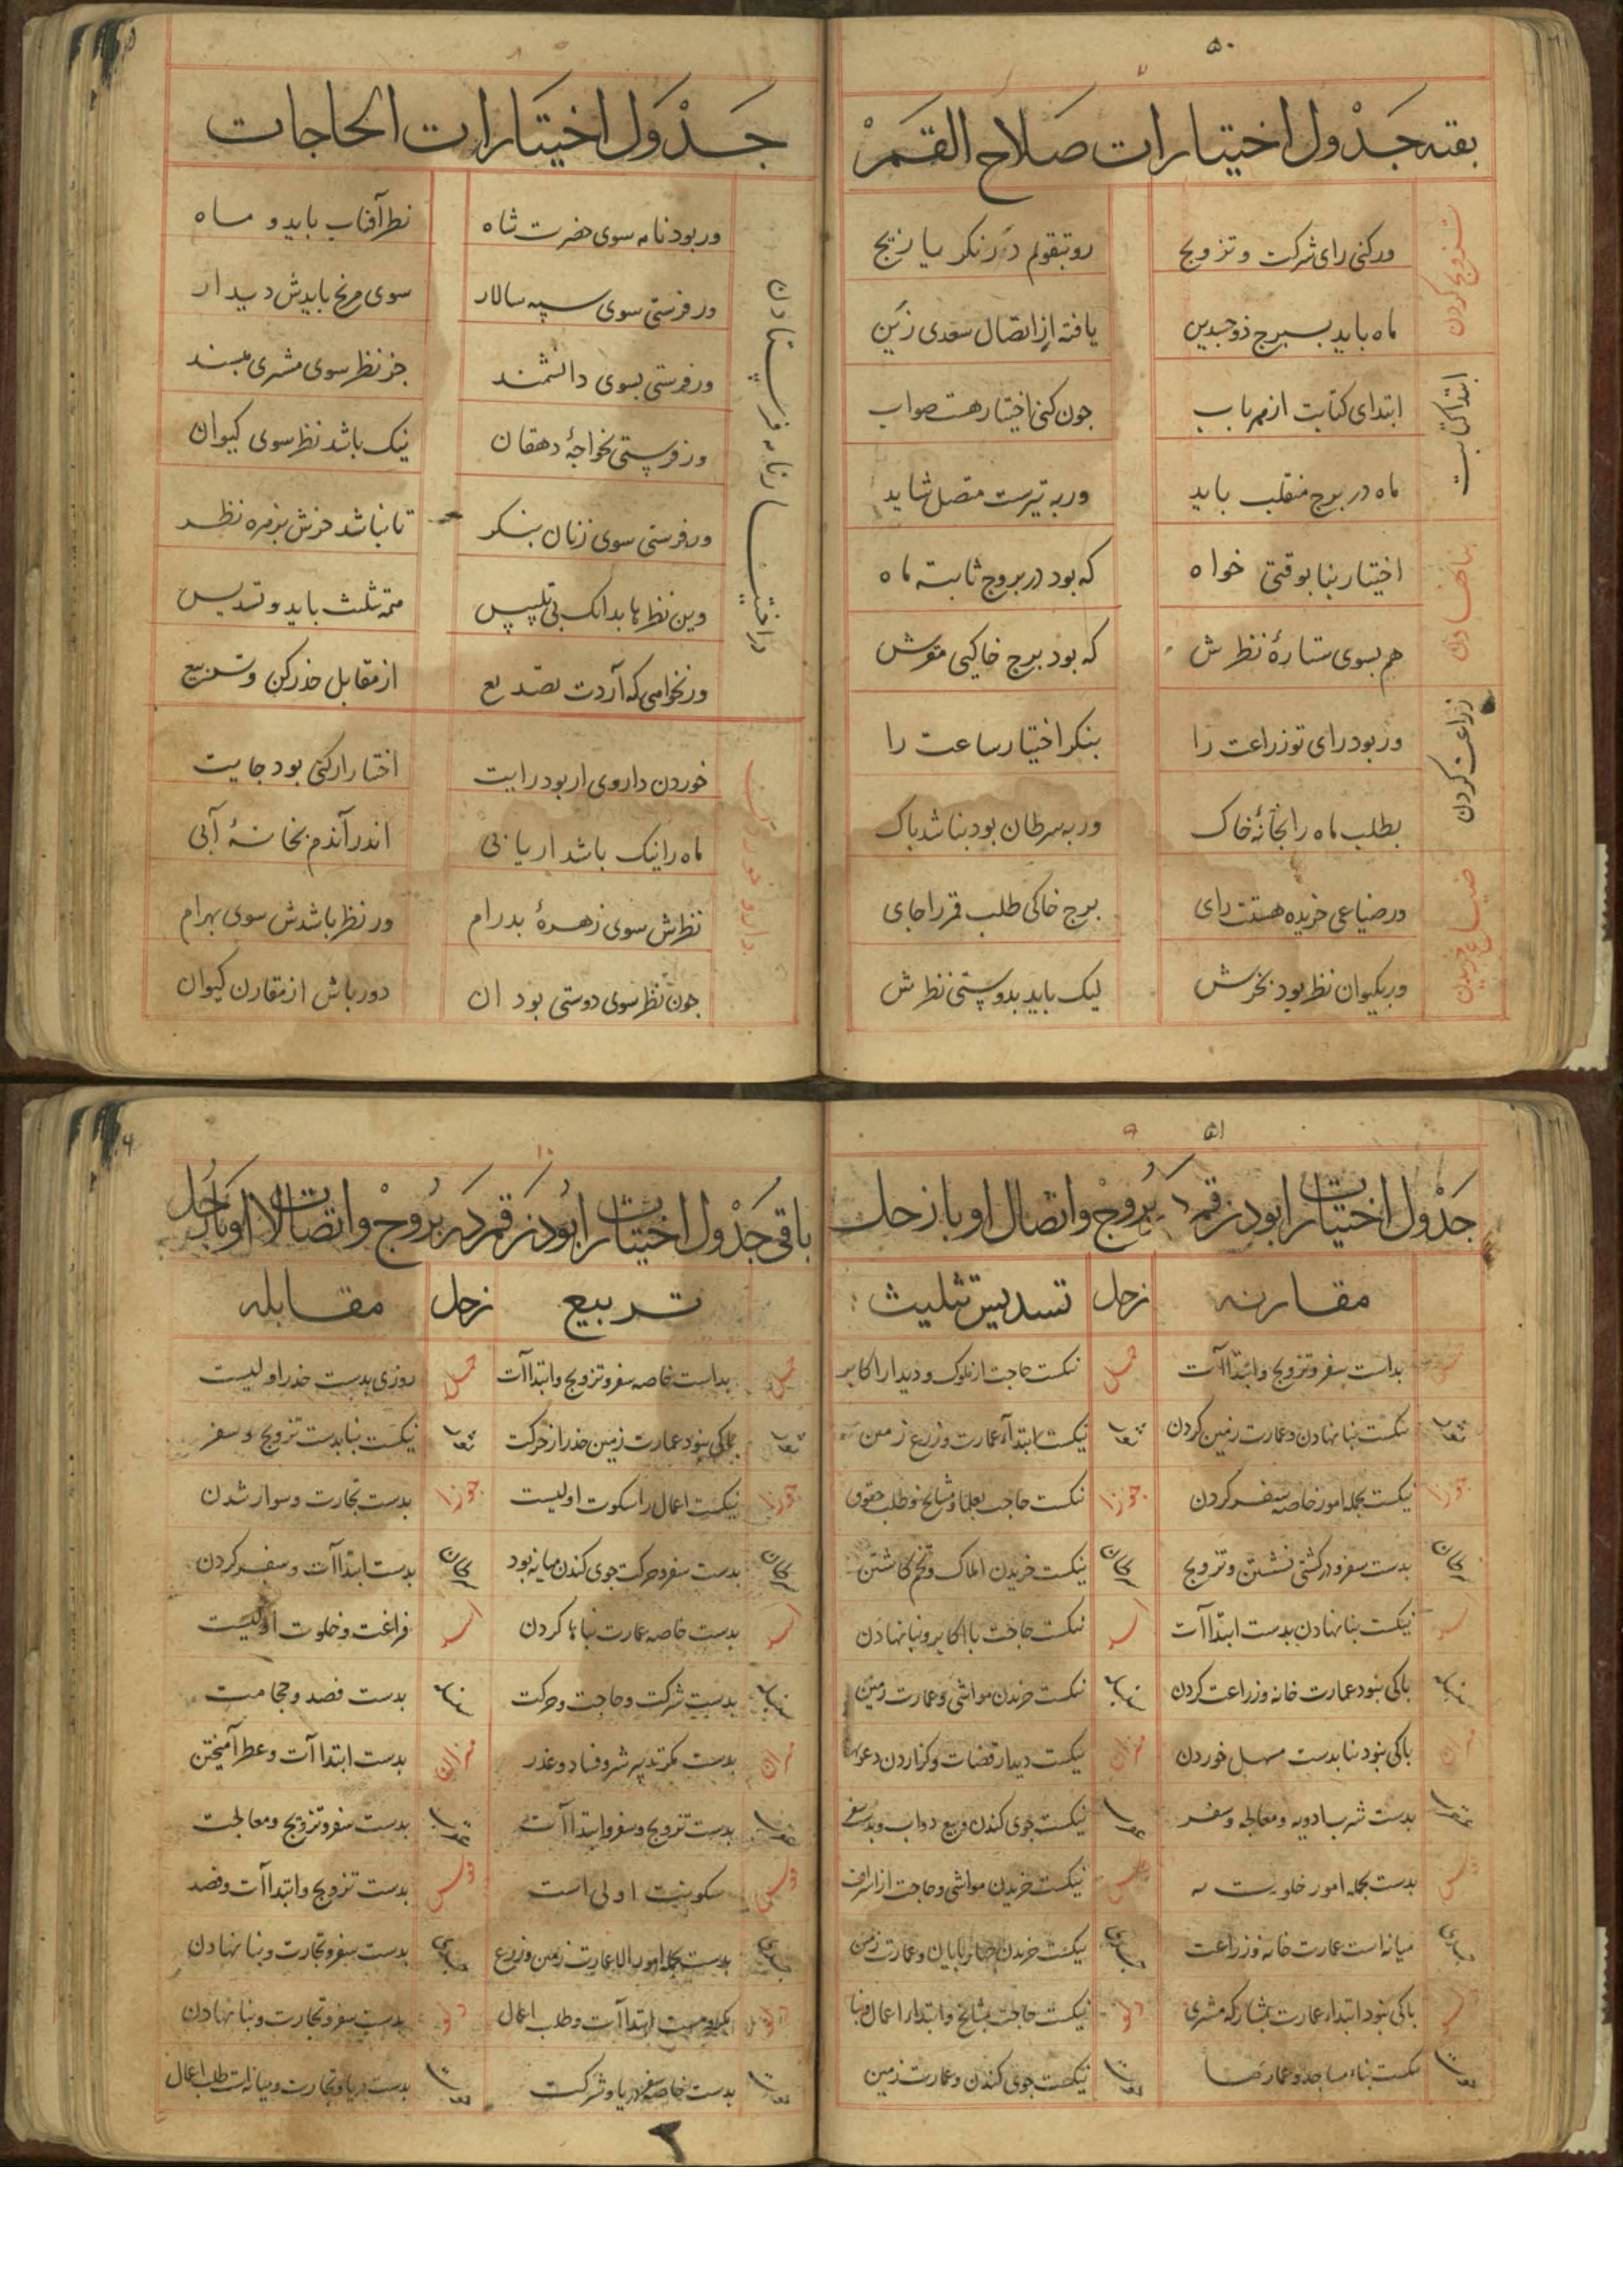 ۵۰
بقیه جدول اختیارات صلاح القمر
تزویج کردن
ورکنی رای شرکت و تزویج
رو بتقویم در نکر یا زیج
ماه باید ببرج ذوجسدین
یافته از اتصال سعدی زین
ابتدا کتابت
ابتدای کتابت از هر باب
جون کنی اختیار هست صواب
ماه در برج منقلب باید
ور به تیرست متصل شاید
بنا نهادن
اختیار بنا بوقتی خواه
که بود در بروج ثابته ماه
هم بسوی ستارهٔ نظرش
که بود برج خاکیی مقرش
زراعت کردن
ور بود رای تو زراعت را
بنکر اختیار ساعت را
بطلب ماه را بخانهٔ خاک
ور به سرطان بود نباشد باک
ضیاع خریدن
ور ضیاعی خریده هستت رای
برج خاکی طلب قمر را جای
ور بکیوان نظر بود بخرش
لیک باید بدوستی نظرش
جدول اختیارات الحاجات
در اختیار نامه فرستادن
ور بود نامه سوی حضرت شاه
نظر آفتاب باید و ماه
ور فرستی سوی سپه سالار
سوی مریخ بایدش دیدار
ور فرستی بسوی دانشمند
جز نظر سوی مشتری مپسند
ور فرستی بخواجهٔ دهقان
نیک باشد نظر سوی کیوان
ور فرستی سوی زنان بنکر
تا نباشد جزش بزهره نظر
وین نظرها بدانک بی تلبیس
همه تثلیث باید و تسدیس
ور نخواهی که آردت تصدیع
از مقابل حذر کن و تربیع
دارو خوردن
خوردن داروی ار بود رایت
اختیار ار کنی بود جایت
ماه را نیک باشد ار یابی
اندر آندم بخانهٔ آبی
نظرش سوی زهرهٔ بدرام
ور نظر باشدش سوی بهرام
جون نظر سوی دوستی بود آن
دور باش از مقارن کیوان
۵۱
جدول اختیارات ابودن قمر در بروج واتصال او با زحل
مقارنه
زحل
تسدیس تثلیث
بداست سفر و تزویج وابتداآت
حمل
نیکست حاجت از ملوک و دیدار اکابر
ثور
نیکست بنا نهادن و عمارت زمین کردن
ثور
نیکست ابتدآء عمارت و زرع زمین
جوزا
نیکست بجمله امور خاصه سفر کردن
جوزا
نیکست حاجت بعلما و مشایخ و طلب حقوق
سرطان
بدست سفر و در کشتی نشستن و تزویج
سرطان
نیکست خریدن املاک و تخم کاشتن
اسد
نیکست بنا نهادن بدست ابتداآت
اسد
نیکست حاجت با اکابر و بنا نهادن
سنبله
باکی نبود عمارت خانه و زراعت کردن
سنبله
نیکست خریدن مواشی و عمارت زمین
میزان
باکی نبود بنا بدست مسهل خوردن
میزان
نیکست دیدار قضات و کزاردن دعوی
عقرب
بدست شرب ادویه و معالجه و سفر
عقرب
نیکست جوی کندن و بیع دواب
قوس
بدست بجمله امور خلوت به
قوس
نیکست خریدن مواشی و حاجت از اشراف
جدی
میانه است عمارت خانه و زراعت
جدی
نیکست خریدن جهارپایان و عمارت زمین
دلو
باکی نبود ابتداء عمارت بمشارکه مشتری
دلو
نیکست حاجت بمشایخ و ابتداء اعمال و بنا
حوت
نیکست بناء مساجد و عمارتها
حوت
نیکست جوی کندن و عمارت زمین
باقی جدول اختیارات ابودن قمر در بروج واتصالات او با زحل
تربیع
زحل
مقابله
حمل
بداست خاصه سفر و تزویج وابتداآت
حمل
روزی بدست حذر اولیست
ثور
باکی نبود عمارت زمین حذر از حرکت
ثور
نیکست بنا بدست تزویج و سفر
جوزا
نیکست اعمال را سکوت اولیست
جوزا
بدست تجارت و سوار شدن
سرطان
بدست سفر و حرکت جوی کندن میانه بود
سرطان
بدست ابتداآت و سفر کردن
اسد
بدست خاصه عمارت بناها کردن
اسد
فراغت و خلوت اولیست
سنبله
بدست شرکت و حاجت و حرکت
سنبله
بدست فصد و حجامت
میزان
بدست مکر تدبیر شر و فساد و غدر
میزان
بدست ابتداآت و عطر آمیختن
عقرب
بدست تزویج و سفر وابتداآت
عقرب
بدست سفر و تزویج و معالجت
قوس
سکونت اولی است
قوس
بدست تزویج وابتداآت و فصد
جدی
بدست بجمله امور الا عمارت زمین و زرع
جدی
بدست سفر و تجارت و بنا نهادن
دلو
ابتداآت و طلب اعمال
دلو
بدست سفر و تجارت و بنا نهادن
حوت
بدست خاصه سفر دریا و شرکت
حوت
بدست دریا و تجارت و میانه است طلب اعمال